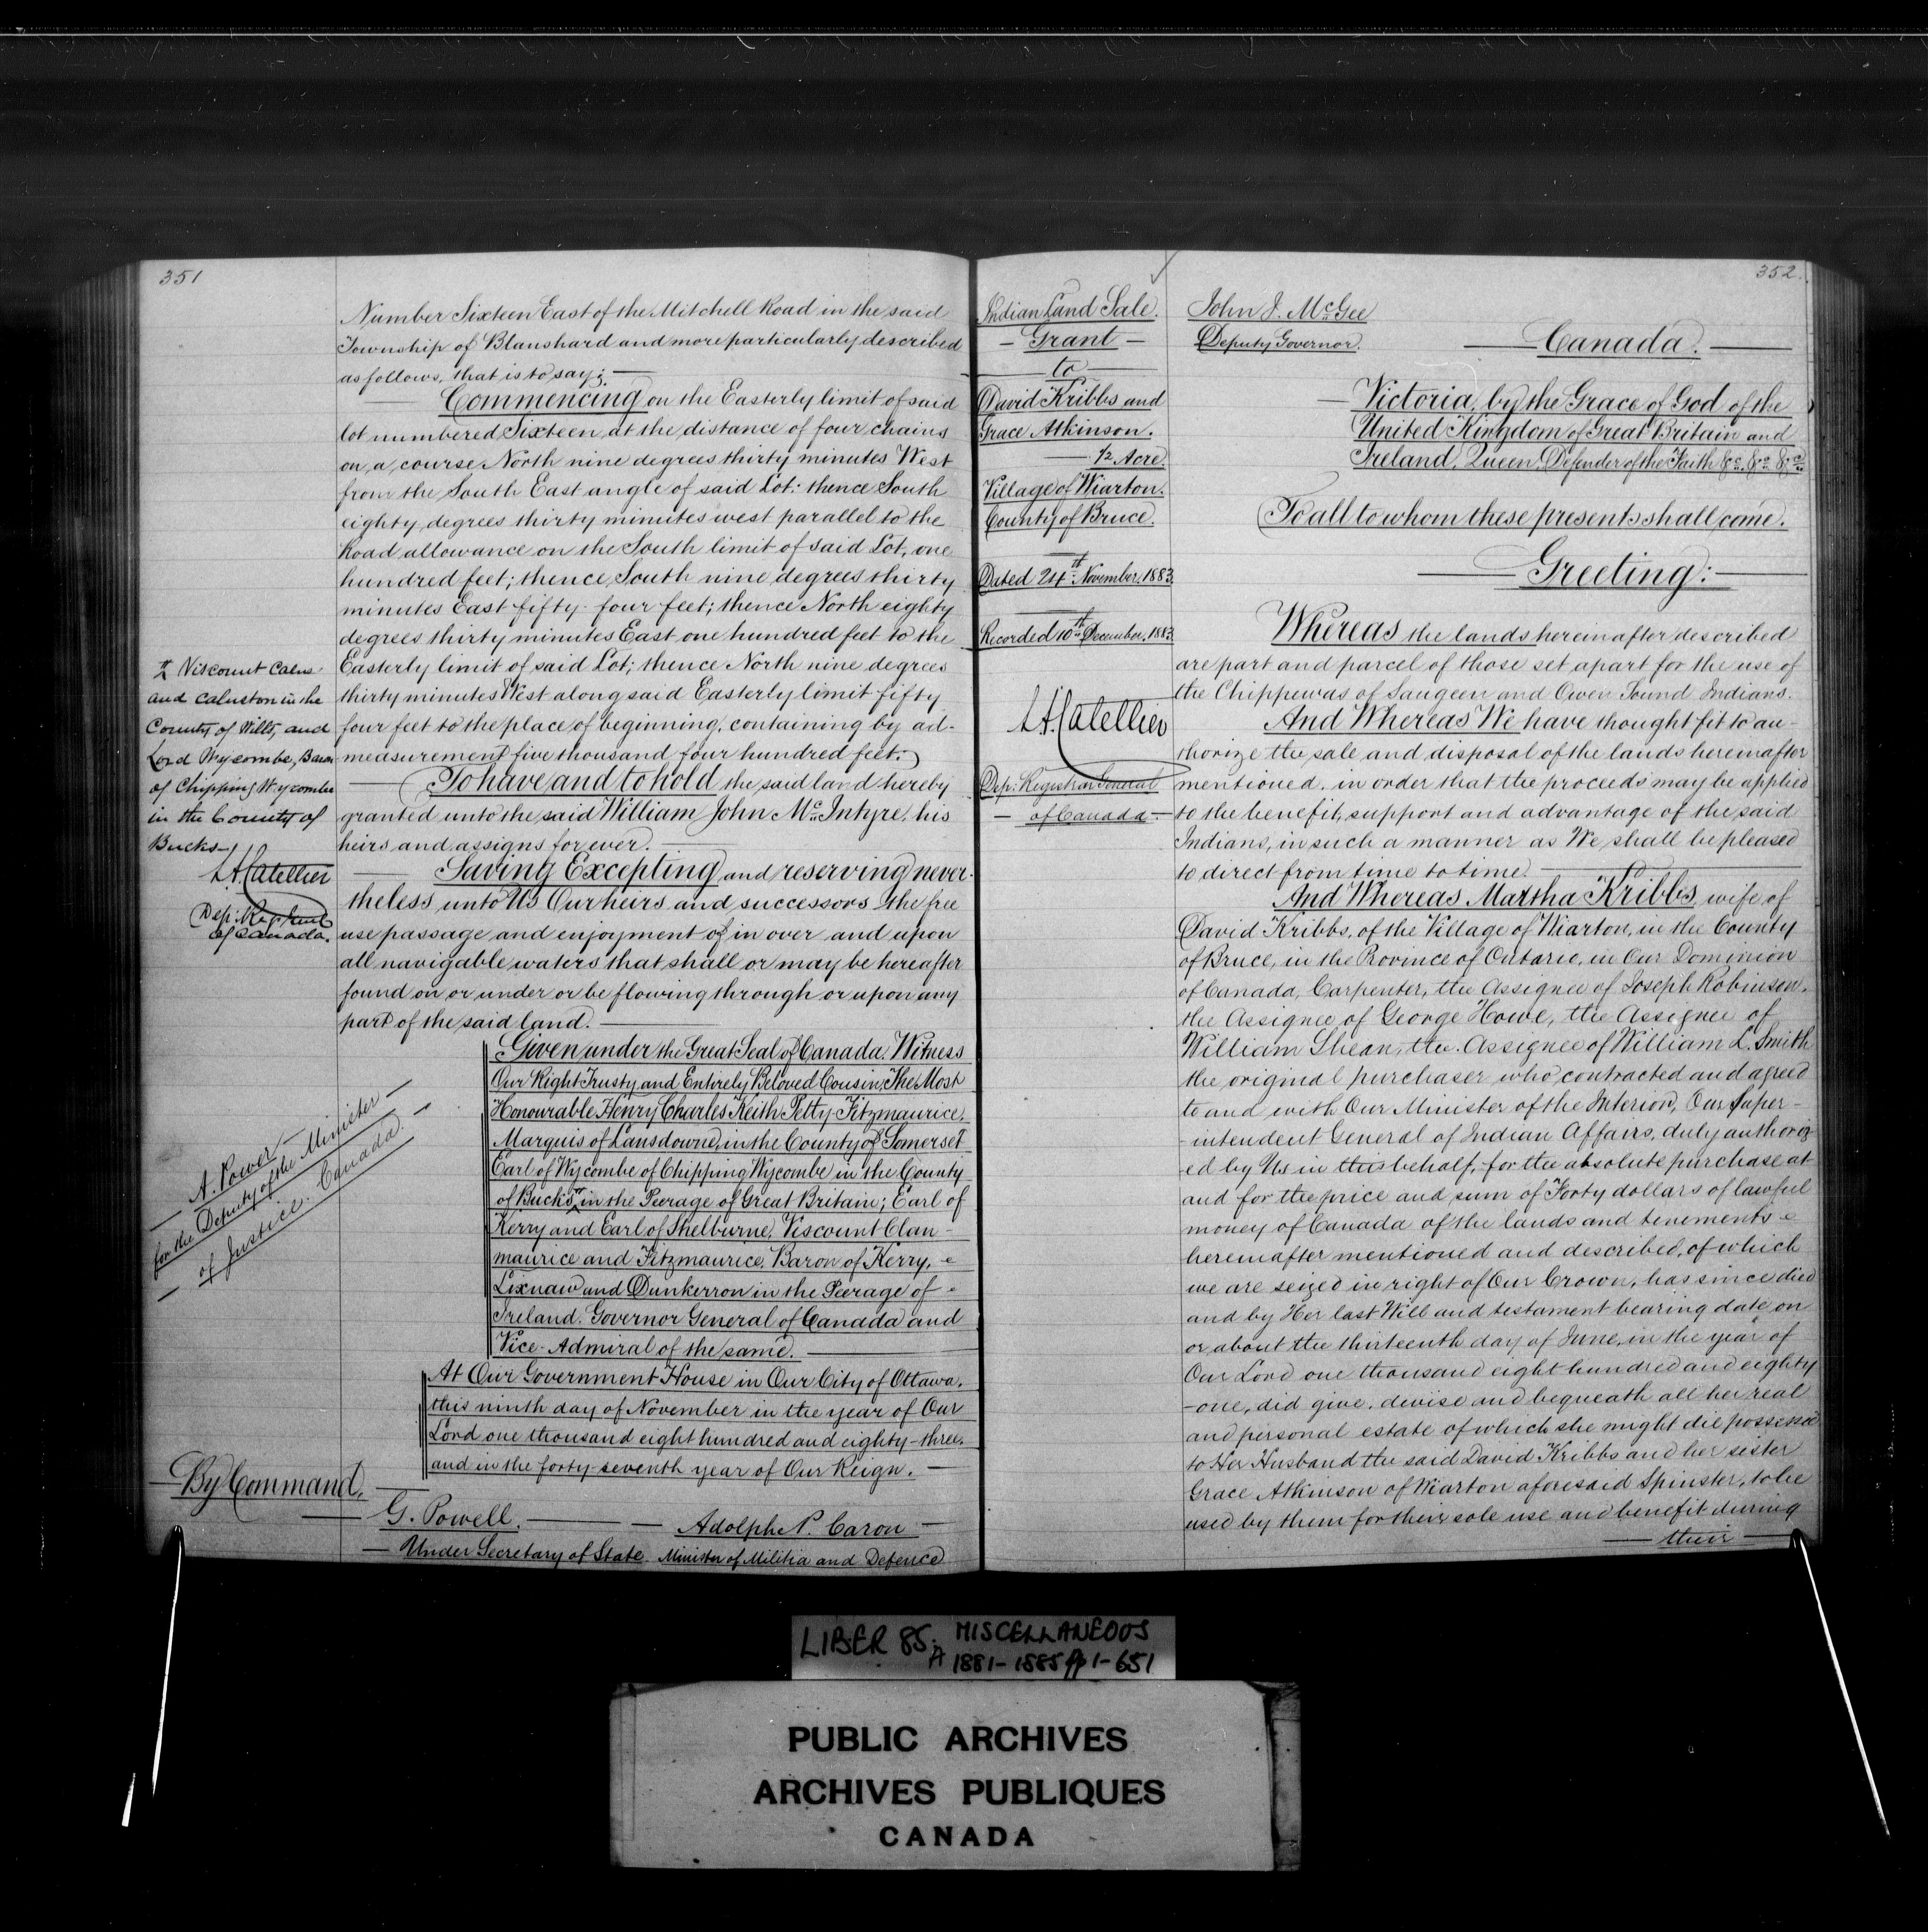 351
Number Sixteen East of the Mitchell Road in the said
Township of Blanshard and more particularly described
as follows, that is to say;
Commencing on the Easterly limit of said
lot numbered Sixteen at the distance of four chains
on a course North nine degrees thirty minutes West
from the South East angle of said Lot: thence South
eighty degrees thirty minutes west parallel to the
Road allowance on the South limit of said Lot, one
hundred feet; thence South nine degrees thirty
minutes East fifty-four feet; thence North eighty
degrees thirty minutes East one hundred feet to the
Easterly limit of said Lot; thence North nine degrees
thirty minutes West along said Easterly limit fifty
four feet to the place of beginning, containing by ad-
measurement five thousand four hundred feet.
To have and to hold the said land hereby
granted unto the said William John McIntyre, his
heirs and assigns for ever.
Saving Excepting and reserving never-
theless unto Us Our heirs and successors the free
use passage and enjoyment of in over and upon
all navigable waters that shall or may be hereafter
found on or under or be flowing through or upon any
part of the said land.
Given under the Great Seal of Canada. Witness
Our Right Trusty and Entirely Beloved Cousin, The Most
Honourable Henry Charles Keith Petty-Fitzmaurice,
Marquis of Lansdowne, in the County of Somerset
Earl of Wycombe of Chipping Wycombe in the County
of Bucks in the Peerage of Great Britain; Earl of
Kerry and Earl of Shelburne, Viscount Clan-
maurice and Fitzmaurice, Baron of Kerry,
Lixnaw and Dunkerron in the Peerage of
Ireland. Governor General of Canada and
Vice-Admiral of the same.
At Our Government House in Our City of Ottawa,
this ninth day of November in the year of Our
Lord one thousand eight hundred and eighty-three,
and in the forty-seventh year of Our Reign.
By Command,
G. Powell. Adolphe P. Caron
Under Secretary of State Minister of Militia and Defence
Viscount Calne
and Calnston in the
County of Wilts, and
Lord Wycombe, Baron
of Chipping Wycombe
in the County of
Bucks
L.A. Catellier
Dep: Reg Genl
of Canada.
A. Power
for the Deputy of the Minister
of Justice. Canada.
352.
Indian Land Sale.
Grant
to
David Kribbs and
Grace Atkinson.
1/2 Acre.
Village of Wiarton.
County of Bruce.
Dated 24th November, 1883.
Recorded 10th December, 1883.
L.A. Catellier
Dep: Registrar General
of Canada
John J. McGee
Deputy Governor.
Canada.
Victoria, by the Grace of God of the
United Kingdom of Great Britain and
Ireland, Queen, Defender of the Faith &c. &c. &c.
To all to whom these presents shall come.
Greeting:
Whereas the lands hereinafter described
are part and parcel of those set apart for the use of
the Chippewas of Saugeen and Owen Sound Indians.
And Whereas We have thought fit to au-
thorize the sale and disposal of the lands hereinafter
mentioned, in order that the proceeds may be applied
to the benefit, support and advantage of the said
Indians, in such a manner as We shall be pleased
to direct from time to time.
And Whereas Martha Kribbs, wife of
David Kribbs, of the Village of Wiarton, in the County
of Bruce, in the Province of Ontario, in Our Dominion
of Canada, Carpenter, the Assignee of Joseph Robinson,
the Assignee of George Howe, the Assignee of
William Shean, the Assignee of William L. Smith
the original purchaser who contracted and agreed
to and with Our Minister of the Interior, Our Super-
-intendent General of Indian Affairs, duly authoriz-
-ed by Us in this behalf, for the absolute purchase at
and for the price and sum of Forty dollars of lawful
money of Canada of the lands and tenements
hereinafter mentioned and described, of which
we are seized in right of Our Crown, has since died
and by Her last Will and testament bearing date on
or about the thirteenth day of June, in the year of
Our Lord one thousand eight hundred and eighty
-one, did give, devise and bequeath all her real
and personal estate of which she might die possessed
to Her Husband the said David Kribbs and her sister
Grace Atkinson of Wiarton aforesaid Spinster, to be
used by them for their sole use and benefit during
their
LIBER 85. A MISCELLANEOUS
1881-1885 pp 1-651
PUBLIC ARCHIVES
ARCHIVES PUBLIQUES
CANADA